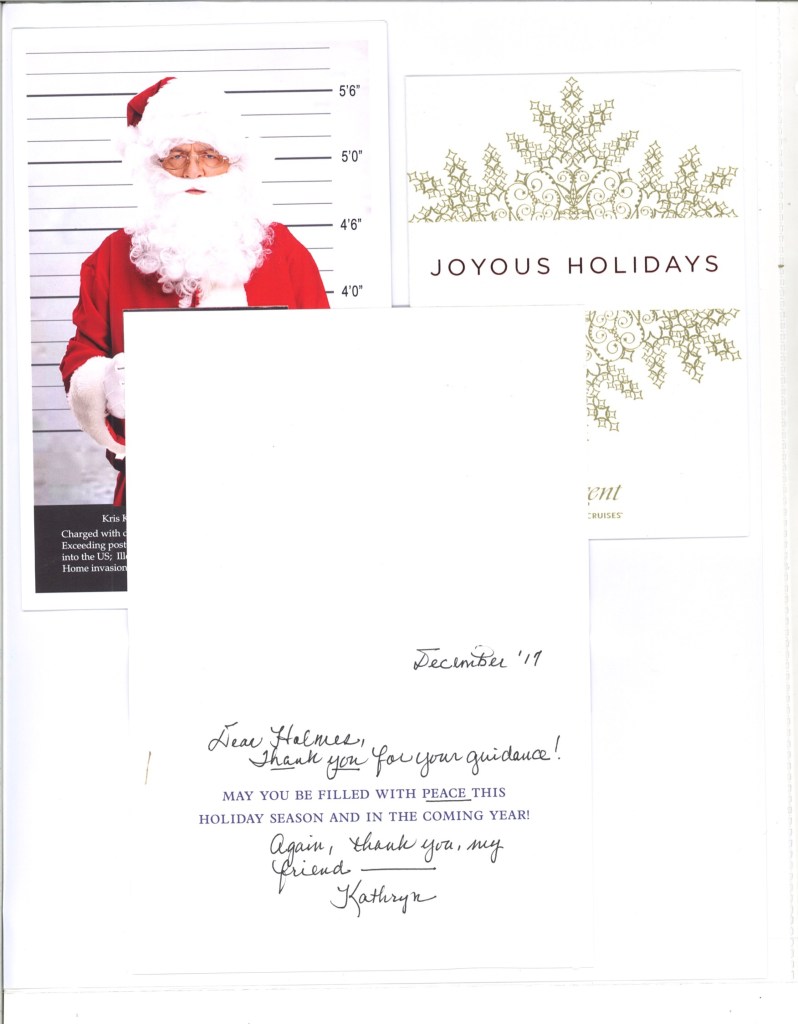 5'6"
5'0"
4'6"
4'0"
Kris K
Charged with
Exceeding post
into the US; Ill
Home invasion
JOYOUS HOLIDAYS
ent
CRUISES
December '17
Dear Holmes,
Thank you for your guidance!
MAY YOU BE FILLED WITH PEACE THIS
HOLIDAY SEASON AND IN THE COMING YEAR!
Again, thank you, my
friend —
Kathryn